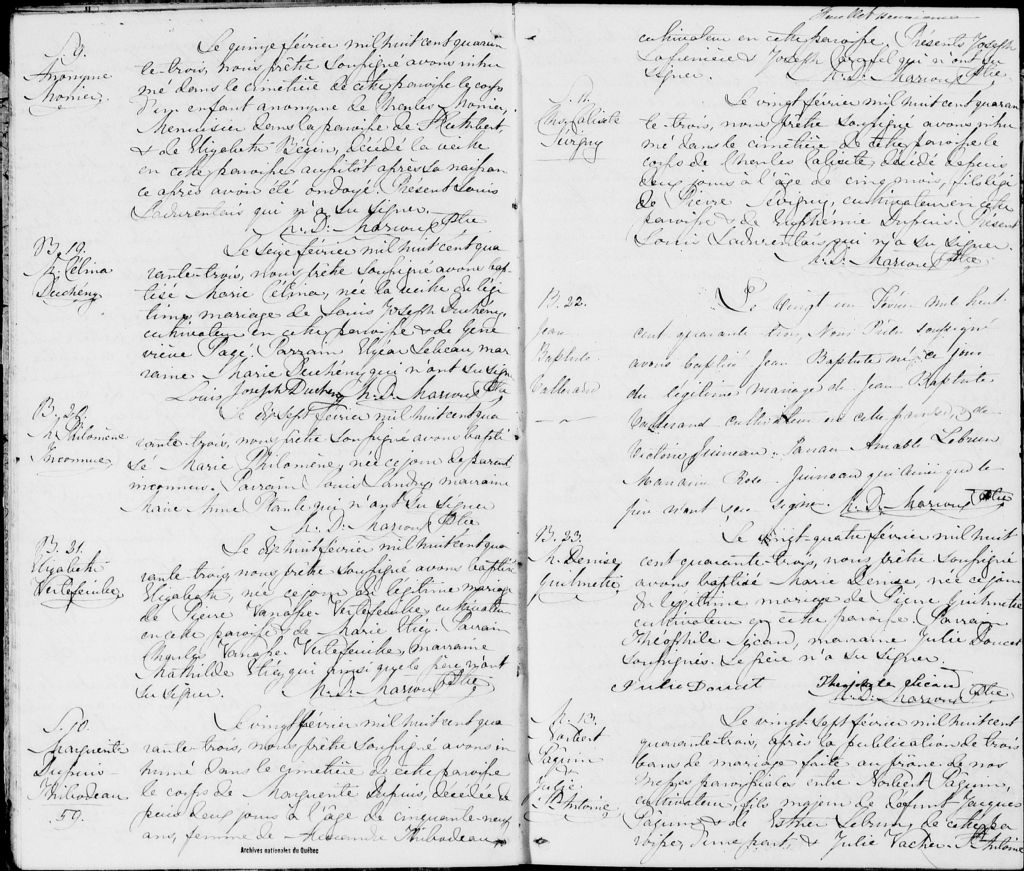 S. 9.
Anonyme
Monier.
Le quinze février mil huit cent quaran
te-trois, nous prêtre soussigné avons inhu
mé dans le cimetière de cette paroisse le corps
d'un enfant anonyme de Charles Monier,
Menuisier dans la paroisse de St Cuthbert,
& de Elizabeth Bégin, décédé la veille
en cette paroisse aussitôt après sa naissan
ce après avoir été ondoyé. Présent Louis
Ladurentais qui n'a su signer.
M. D. Marcoux Ptre
B. 19.
M. Célina
Duchény
Le seize février mil huit cent qua
rante-trois, nous prêtre soussigné avons bap
tisé Marie Célina, née la veille du légi
time mariage de Louis Joseph Duchény,
cultivateur en cette paroisse & de Gene
vieve Pagé. Parrain Elzéar Lebeau, mar
raine Marie Duchény qui n'ont su signer
Louis Joseph Ducheny M. D. Marcoux Ptre
B. 20.
M. Philomène
Inconnue
Le dix sept février mil huit cent qua
rante-trois, nous prêtre soussigné avons bapti
sé Marie Philomène, née ce jour de parents
inconnus. Parrain Louis Landry marraine
Marie Anne Plante qui n'ont su signer
M. D. Marcoux Ptre
B. 21.
Elizabeth
Vertefeuille
Le dix huit février mil huit cent qua
rante-trois, nous prêtre soussigné avons baptisé
Elizabeth, née ce jour du légitime mariage
de Pierre Vanasse Vertefeuille, cultivateur
en cette paroisse & de Marie
Parrain
Charles Vanasse Vertefeuille, marraine
Mathilde
qui ainsi que le père n'ont
su signer. M. D. Marcoux Ptre
S. 10.
Marguerite
Dupuis
Thibodeau
59.
Le vingt février mil huit cent qua
rante-trois, nous prêtre soussigné avons in
humé dans le cimetière de cette paroisse
le corps de Marguerite Dupuis, décédée de
puis deux jours à l'âge de cinquante neuf
ans, femme de Alexandre Thibodeau,
Archives nationales du Québec
cultivateur en cette paroisse. Présents Joseph
Lafrenière & Joseph
qui n'ont su
signer. M. D. Marcoux Ptre
S. 11.
Chs Caliste
Sévigny
Le vingt février mil huit cent quaran
te-trois, nous prêtre soussigné avons inhu
mé dans le cimetière de cette paroisse le
corps de Charles Caliste, décédé depuis
deux jours à l'âge de cinq mois, fils légi
de Pierre Sévigny, cultivateur en cette
paroisse & de Euphémie Dupuis. Présent
Louis Ladurentais qui n'a su signer.
M. D. Marcoux Ptre
B. 22.
Jean
Baptiste
Vallerand
Le vingt un Février mil huit
cent quarante trois, Nous Prêtre soussigné
avons baptisé Jean Baptiste né ce jour
du légitime mariage de Jean Baptiste
Vallerand cultivateur en cette paroisse, & de
Victoire Juineau. Parrain Amable Lebrun
Marraine Rose Juineau qui ainsi que le
père n'ont su signer. M. D. Marcoux Ptre
B. 23.
M. Denise
Guilmette
Le vingt-quatre février mil huit
cent quarante-trois, nous prêtre soussigné
avons baptisé Marie Denise, née ce jour
du légitime mariage de Pierre Guilmette
cultivateur en cette paroisse. Parrain
Théophile Sicard, marraine Julie Doucet
soussignés. Le père n'a su signer.
Julie Doucet Theophile Sicard
M. D. Marcoux Ptre
M. 13.
Norbert
Paquin
&
Julie
St Antoine
Le vingt-sept février mil huit cent
quarante-trois, après la publication de trois
bans de mariage faite au prône de nos
messes paroissiales entre Norbert Paquin,
cultivateur, fils majeur de défunt Jacques
Paquin & de Esther Lebrun, de cette pa
roisse, d'une part; & Julie Vacher St Antoine